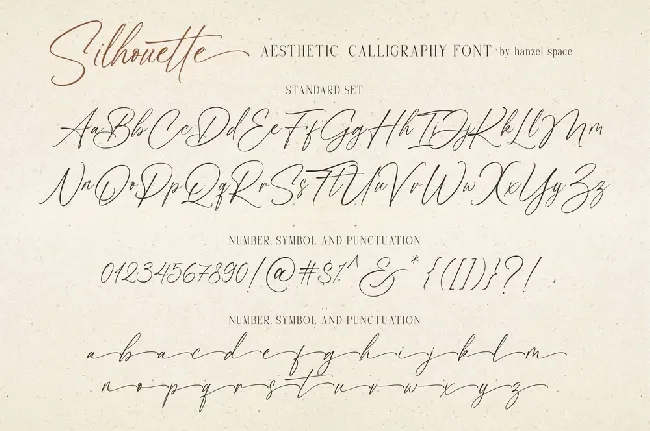 Silhouette AESTHETIC CALLIGRAPHY FONT by hanzel space
STANDARD SET
AaBbCcDdEeFfGgHhIiJjKkLlMm
NnOoPpQqRrSsTtUuVvWwXxYyZz
NUMBER, SYMBOL AND PUNCTUATION
01234567890/@#$%^&*{([])}?!
NUMBER, SYMBOL AND PUNCTUATION
a b c d e f g h i j k l m
n o p q r s t u v w x y z